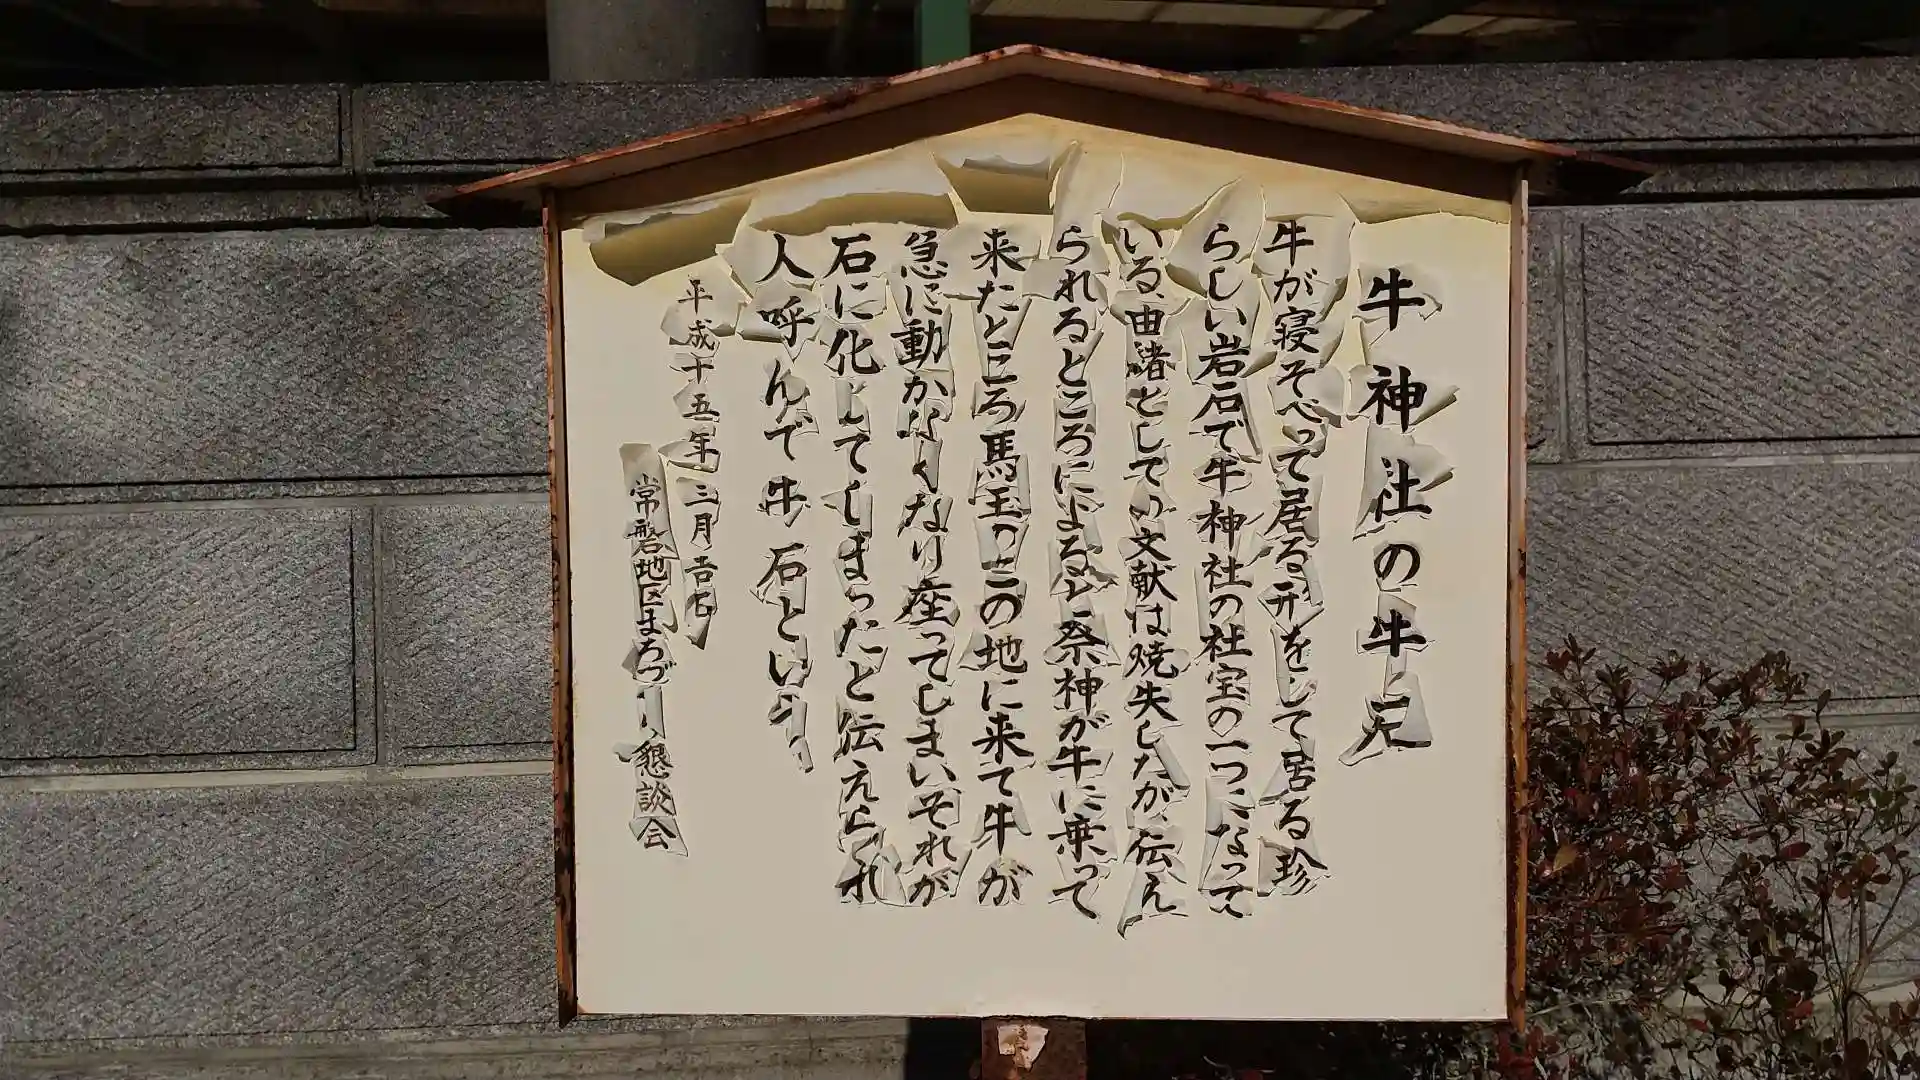 牛神社の牛石
牛が寝そべって居る形をして居る珍
らしい岩石で牛神社の社宝の一つになって
いる、由緒としての文献は焼失したが、伝え
られるところによると祭神が牛に乗って
来たところ馬玉のこの地に来て牛が
急に動かなくなり座ってしまいそれが
石に化してしまったと伝えられ
人呼んで牛石という
平成十五年三月吉日
常磐地区まちづくり懇談会